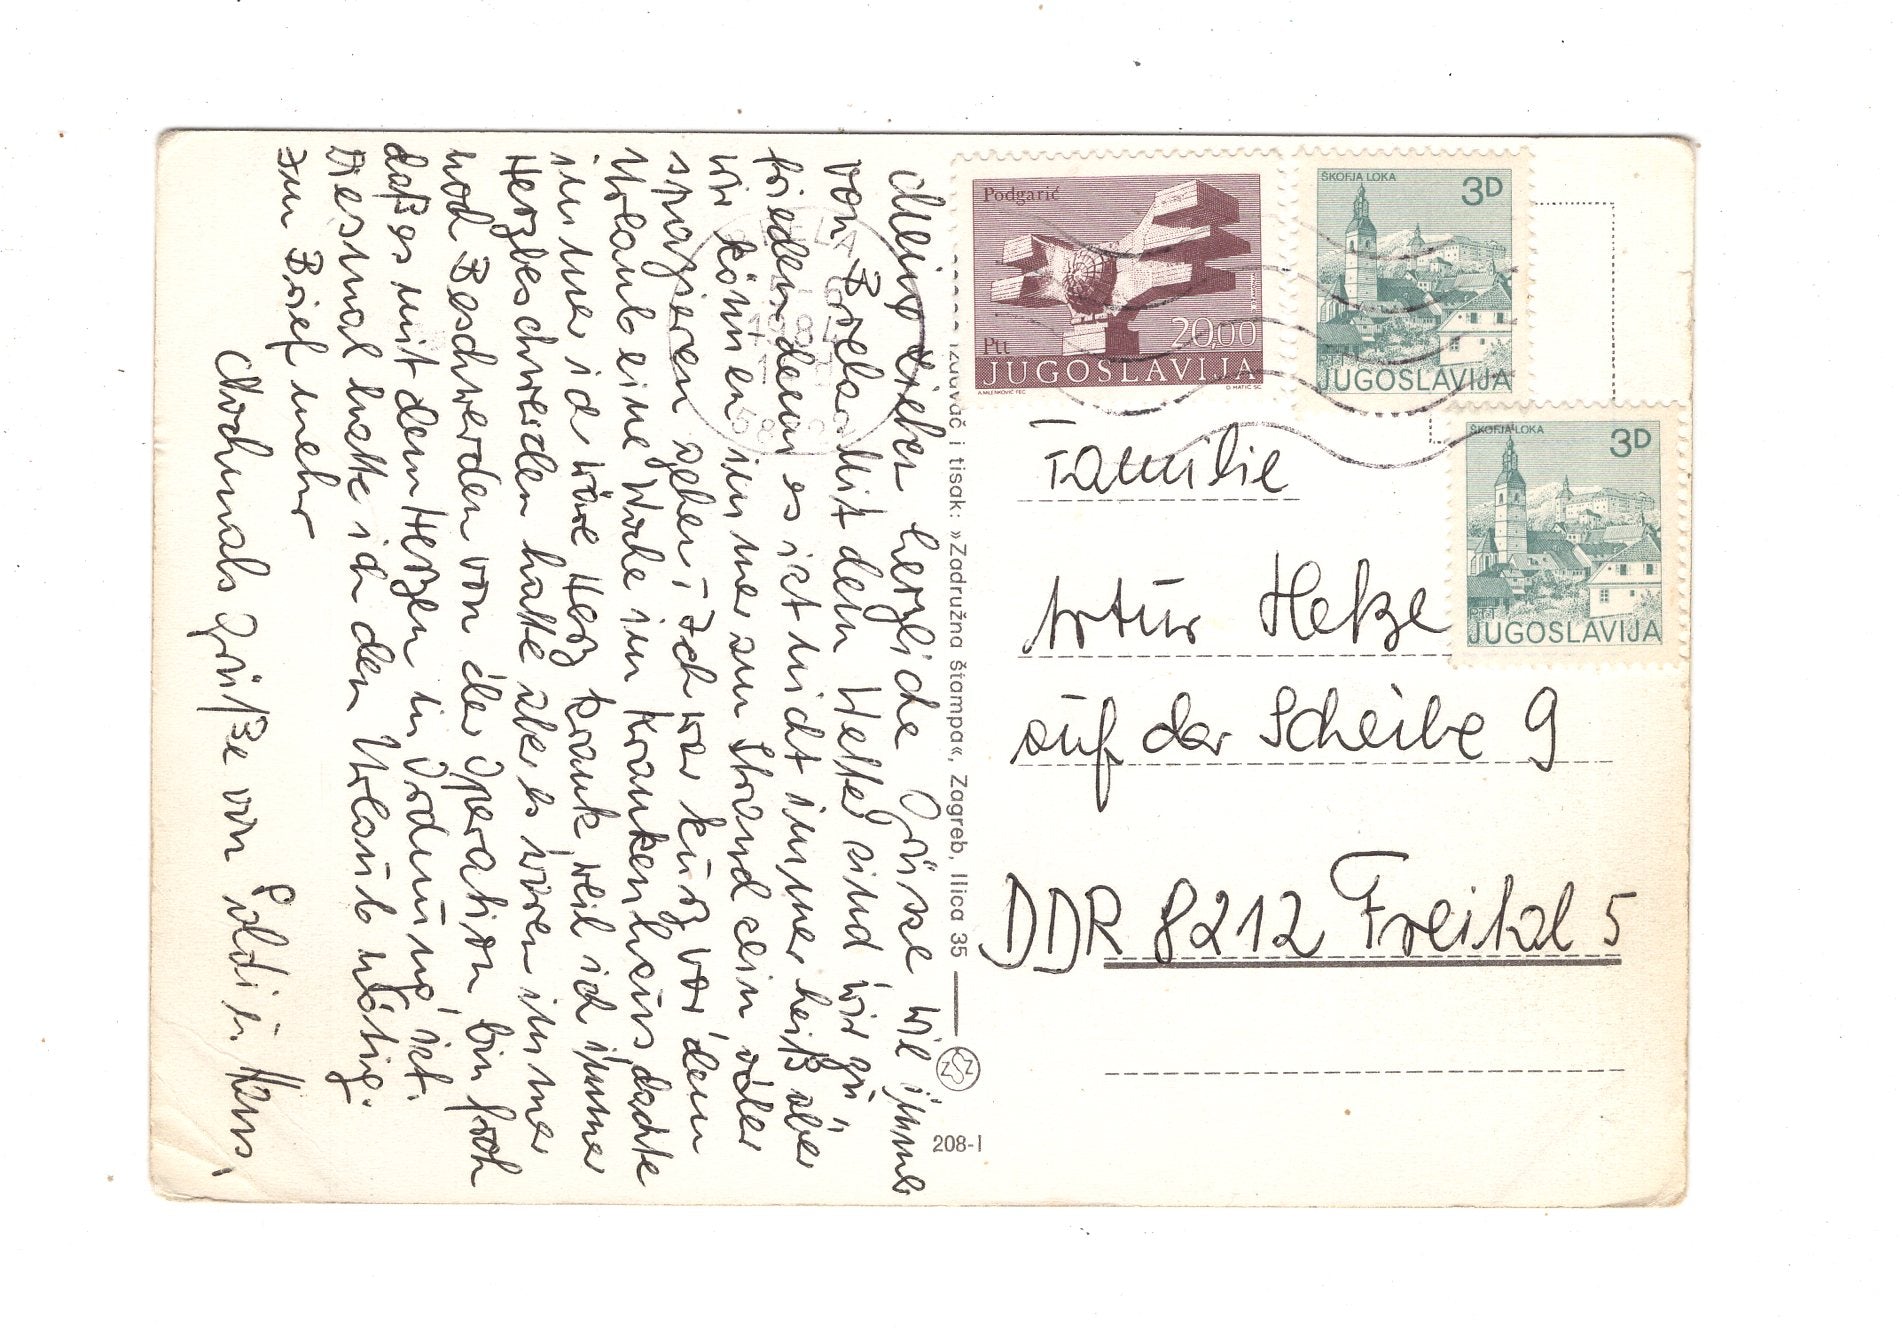 Meine Lieben herzliche Grüsse wie immer
von Brela. Mit dem Wetter sind wir zu-
frieden denn es ist nicht immer heiß aber
wir können immer am Strand sein oder
spazieren gehen. Ich war kurz vor dem
Urlaub eine Woche im Krankenhaus dachte
immer ich wäre Herz krank, weil ich immer
Herzbeschwerden hatte aber es wären immer
noch Beschwerden von der Operation bin froh
daß es mit dem Herzen in Ordnung ist.
Diesmal hatte ich den Urlaub nötig.
zum Brief mehr
Nochmals Grüße von Poldi u. Hans.
BRELA
1984
Izdavač i tisak: »Zadružna štampa«, Zagreb, Ilica 35
ZSZ
208-I
Podgarić
20,00
Ptt
JUGOSLAVIJA
A.MILENKOVIĆ FEC.
D. MATIĆ SC.
ŠKOFJA LOKA
3D
PTT
JUGOSLAVIJA
ŠKOFJA LOKA
3D
PTT
JUGOSLAVIJA
Familie
Artur Hetze
auf der Scheibe 9
DDR 8212 Freital 5